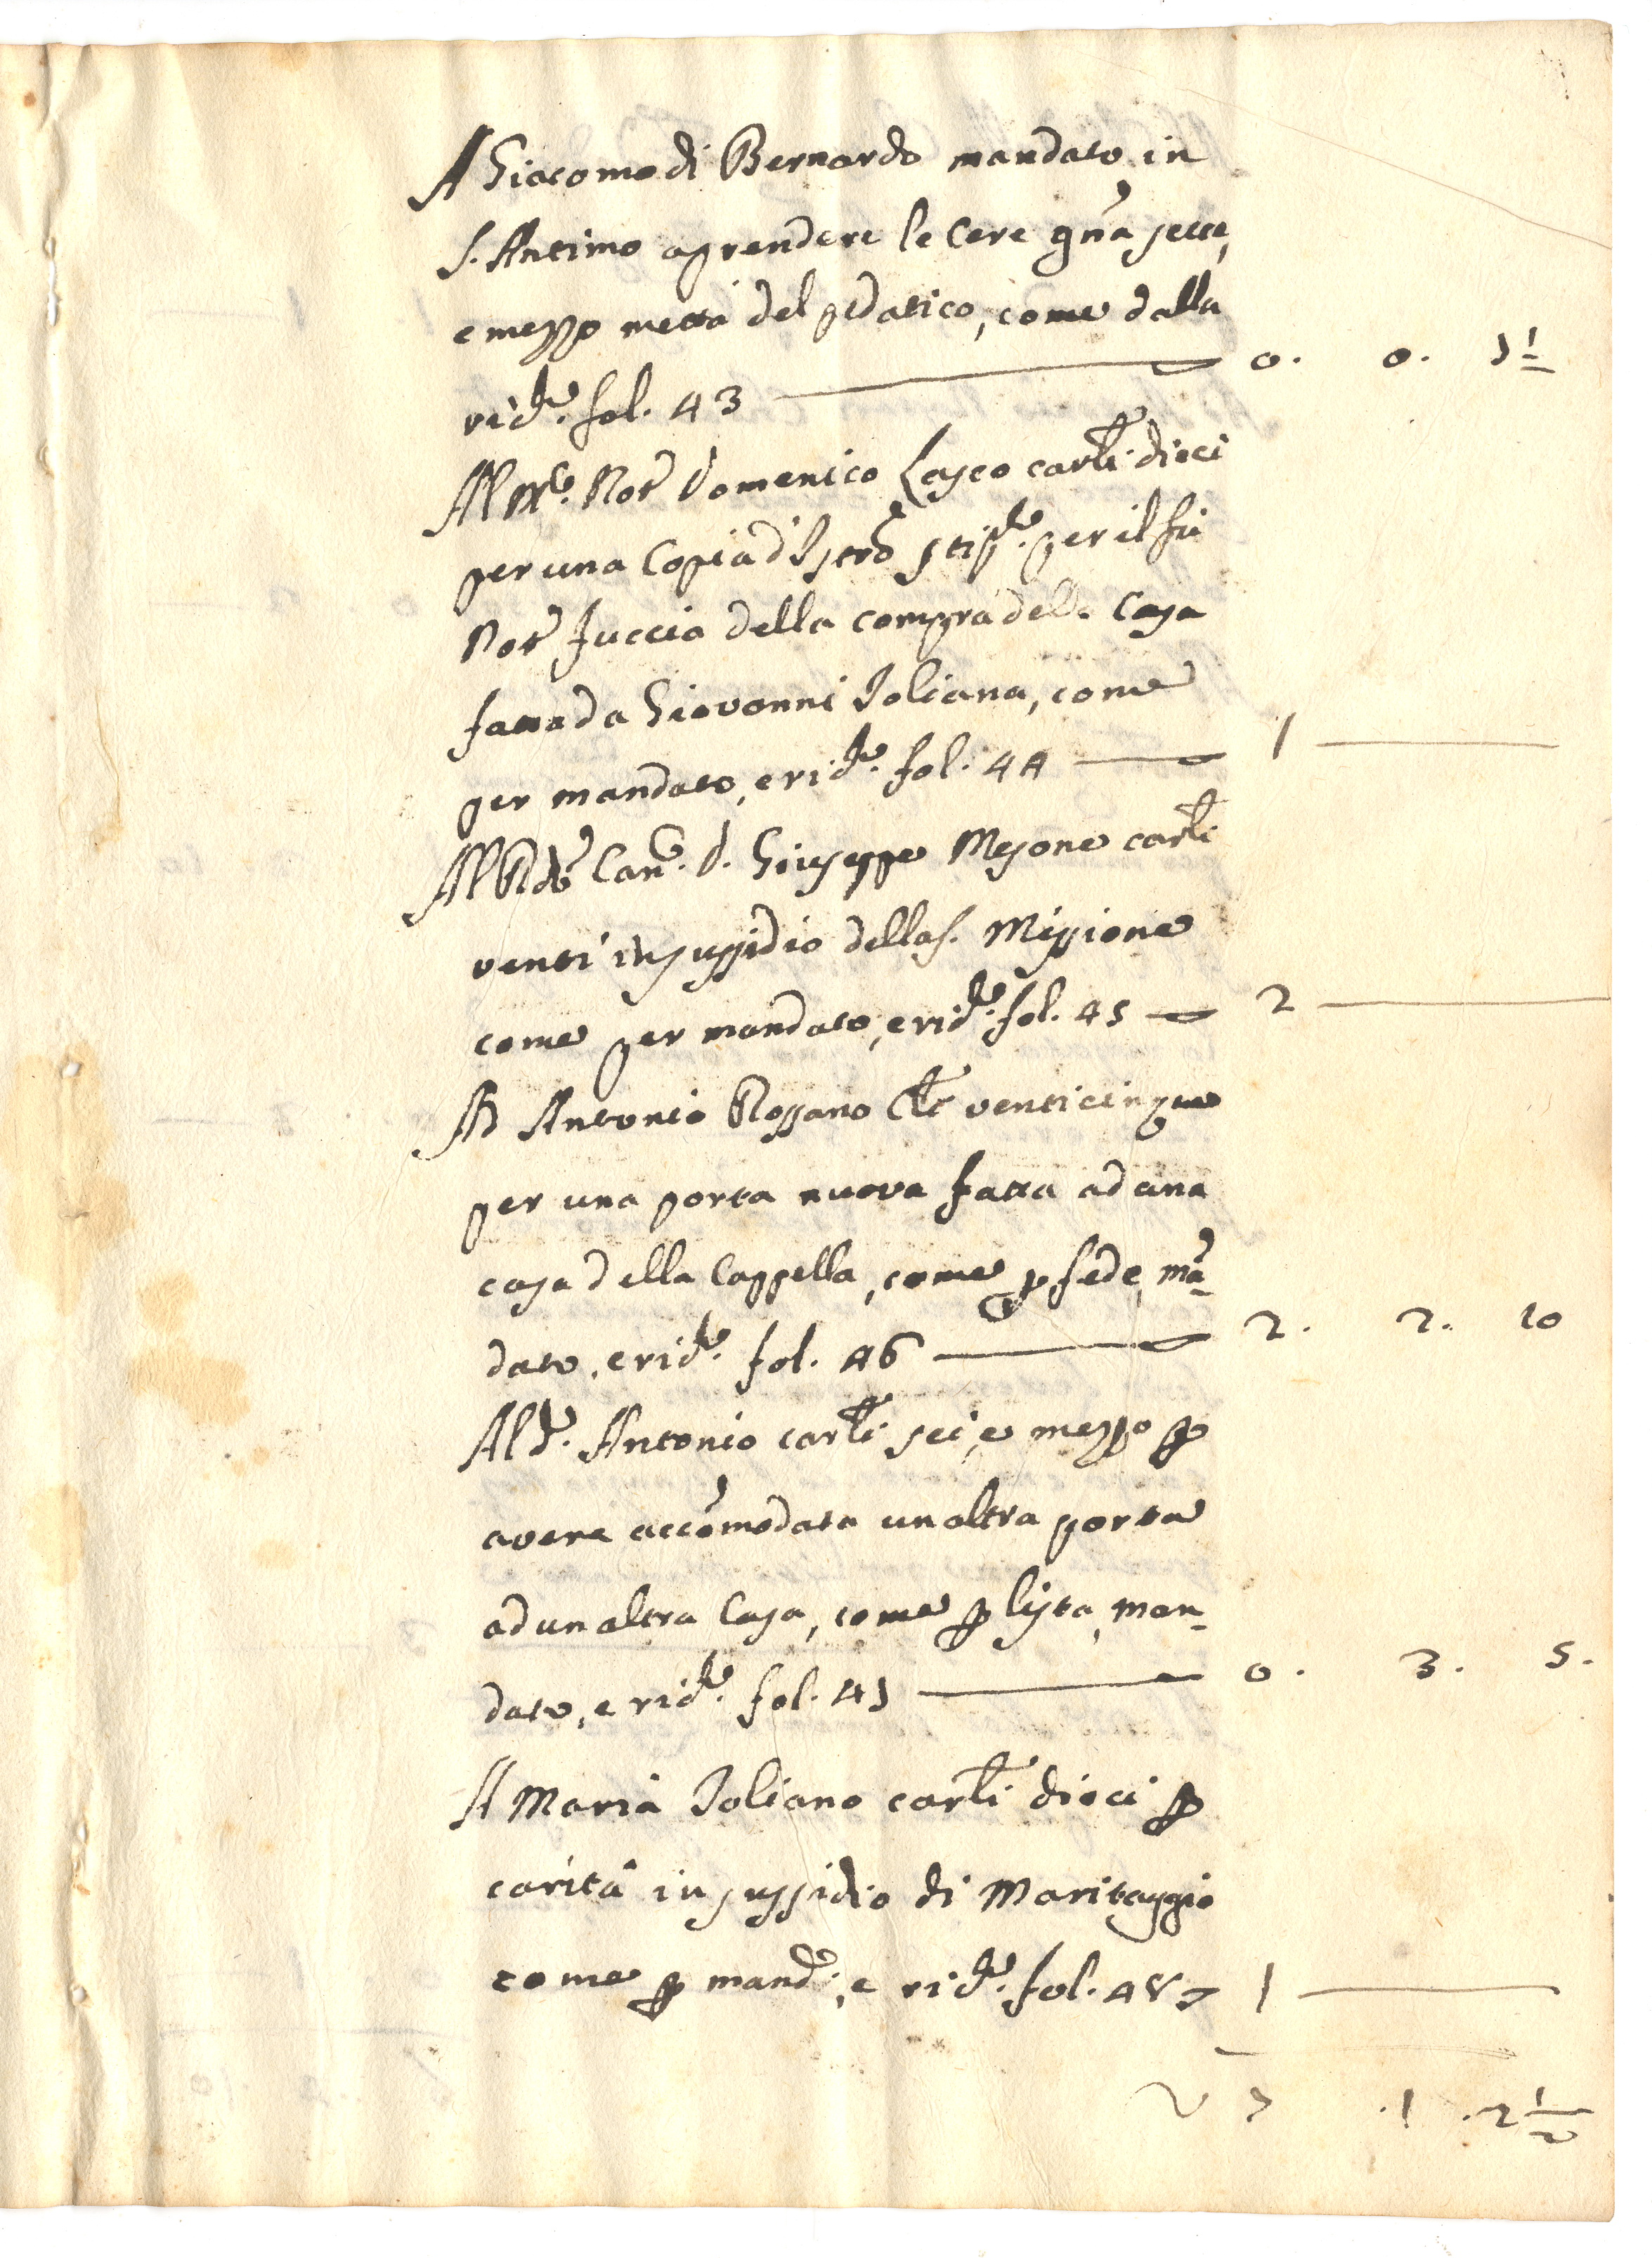 A Giacomo di Bernardo mandato in
S. Antimo a prendere le Cere gña sette,
e mezzo mettà del pedatico, come dalla
rid.ta fol. 43 0. 0. 7 1/
Al Mco. Notr Domenico Lasco carli dieci
per una Copia d'Istro stip.to per il fù
Notr Fuccio della compra della Casa
fatta da Giovanni Ioliano, come
per mandato, e rid.ta fol. 44 1
Al Rdo Can.co D. Giuseppe Mesone carli
venti in sussidio della S. Missione
come per mandato, e rid.ta fol. 45 2
Ad Antonio Rossano Cli venticinque
per una porta nuova fatta ad una
casa della Cappella, come p fede, mã-
dato, e rid.ta fol. 46 2. 2. 10
Al d.to Antonio carli sei, e mezzo p
avere accõmodata un altra porta
ad un altra Casa, come p lista, man-
dato, e rid.ta fol. 47 0. 3. 5.
A Maria Ioliano carli dieci p
carità in sussidio di Maritaggio
come p mand.to, e rid.ta fol. 48 1
7 .1 .2 1/2